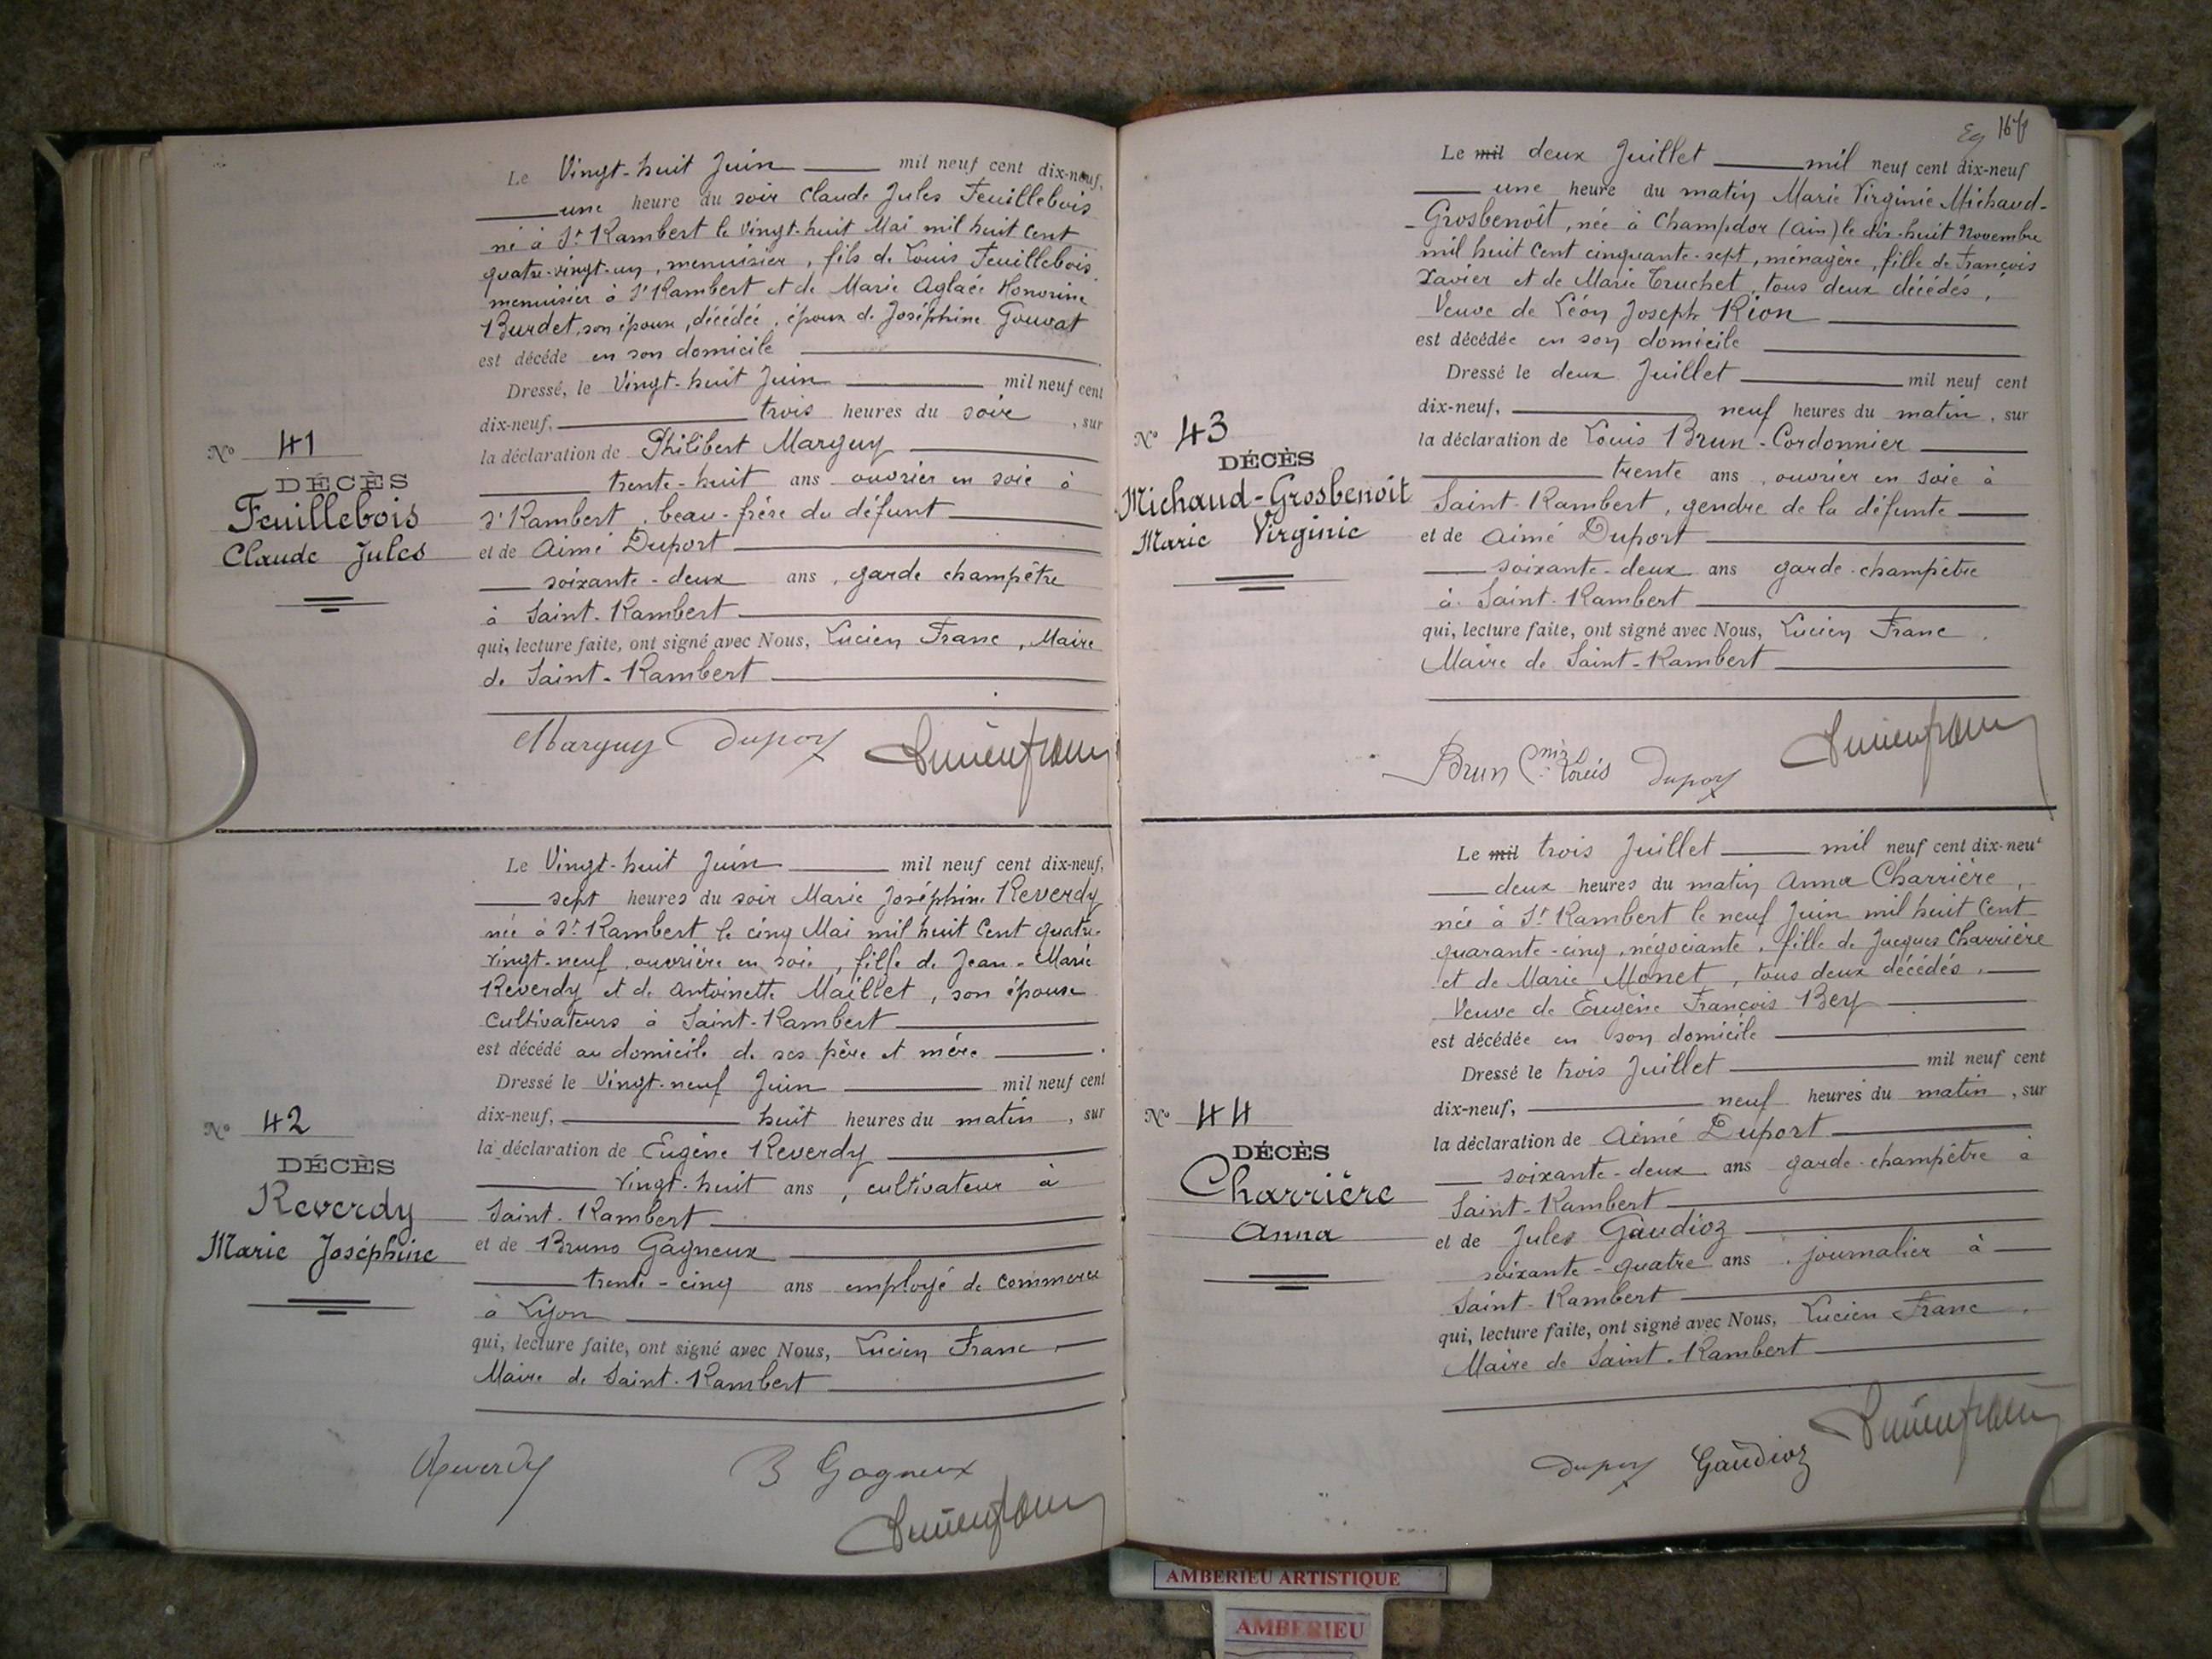 Le Vingt-huit Juin mil neuf cent dix-neuf,
une heure du soir Claude Jules Feuillebois
né à St Rambert le vingt-huit Mai mil huit cent
quatre-vingt-un, menuisier, fils de Louis Feuillebois
menuisier à St Rambert et de Marie Aglaée Honorine
Burdet, son épouse, décédée, époux de Joséphine Gouvat
est décédé en son domicile
Dressé, le Vingt-huit Juin mil neuf cent
dix-neuf, trois heures du soir, sur
la déclaration de Philibert Marguy
trente-huit ans ouvrier en soie à
St Rambert, beau-frère du défunt
et de Aimé Duport
soixante-deux ans, garde champêtre
à Saint-Rambert
qui, lecture faite, ont signé avec Nous, Lucien Franc, Maire
de Saint-Rambert
No 41
DÉCÈS
Feuillebois
Claude Jules
Marguy Duport Lucien Franc
Le Vingt-huit Juin mil neuf cent dix-neuf,
sept heures du soir Marie Joséphine Reverdy
née à St Rambert le cinq Mai mil huit cent quatre-
vingt-neuf, ouvrière en soie, fille de Jean-Marie
Reverdy et de Antoinette Maillet, son épouse
cultivateurs à Saint-Rambert
est décédé au domicile de ses père et mère
Dressé le Vingt-neuf Juin mil neuf cent
dix-neuf, huit heures du matin, sur
la déclaration de Eugène Reverdy
vingt-huit ans, cultivateur à
Saint-Rambert
et de Bruno Gagneux
trente-cinq ans employé de commerce
à Lyon
qui, lecture faite, ont signé avec Nous, Lucien Franc,
Maire de Saint-Rambert
No 42
DÉCÈS
Reverdy
Marie Joséphine
Reverdy B Gagneux
Lucien Franc
Le mil deux Juillet mil neuf cent dix-neuf
une heure du matin Marie Virginie Michaud-
-Grosbenoît, née à Champdor (Ain) le dix-huit Novembre
mil huit cent cinquante-sept, ménagère, fille de François
Xavier et de Marie Truchet, tous deux décédés,
Veuve de Léon Joseph Rion
est décédée en son domicile
Dressé le deux Juillet mil neuf cent
dix-neuf, neuf heures du matin, sur
la déclaration de Louis Brun-Cordonnier
trente ans, ouvrier en soie à
Saint-Rambert, gendre de la défunte
et de Aimé Duport
soixante-deux ans garde-champêtre
à Saint-Rambert
qui, lecture faite, ont signé avec Nous, Lucien Franc,
Maire de Saint-Rambert
No 43
DÉCÈS
Michaud-Grosbenoit
Marie Virginie
Brun Louis Duport Lucien Franc
Le mil trois Juillet mil neuf cent dix-neuf
deux heures du matin Anna Charrière,
née à St Rambert le neuf Juin mil huit cent
quarante-cinq, négociante, fille de Jacques Charrière
et de Marie Monet, tous deux décédés,
Veuve de Eugène François Bey
est décédée en son domicile
Dressé le trois Juillet mil neuf cent
dix-neuf, neuf heures du matin, sur
la déclaration de Aimé Duport
soixante-deux ans garde-champêtre à
Saint-Rambert
et de Jules Gaudioz
soixante-quatre ans, journalier à
Saint-Rambert
qui, lecture faite, ont signé avec Nous, Lucien Franc,
Maire de Saint-Rambert
No 44
DÉCÈS
Charrière
Anna
Duport Gaudioz Lucien Franc
AMBERIEU ARTISTIQUE
AMBERIEU